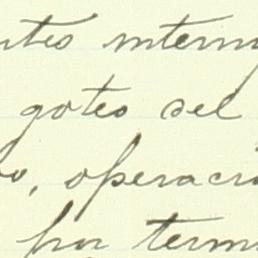 ntes interny
goteo del
vo, operació
por term